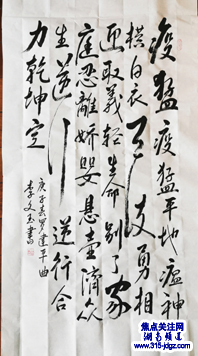 疫猛疫猛平地瘟神
横白衣天使勇相
迎取义轻生命别了家
庭忍离娇婴悬壶济众
生逆行逆行合
力乾坤定
庚子春罗莲平曲
李文玉书
焦点关注网
湖南频道
www.315-jdgz.com